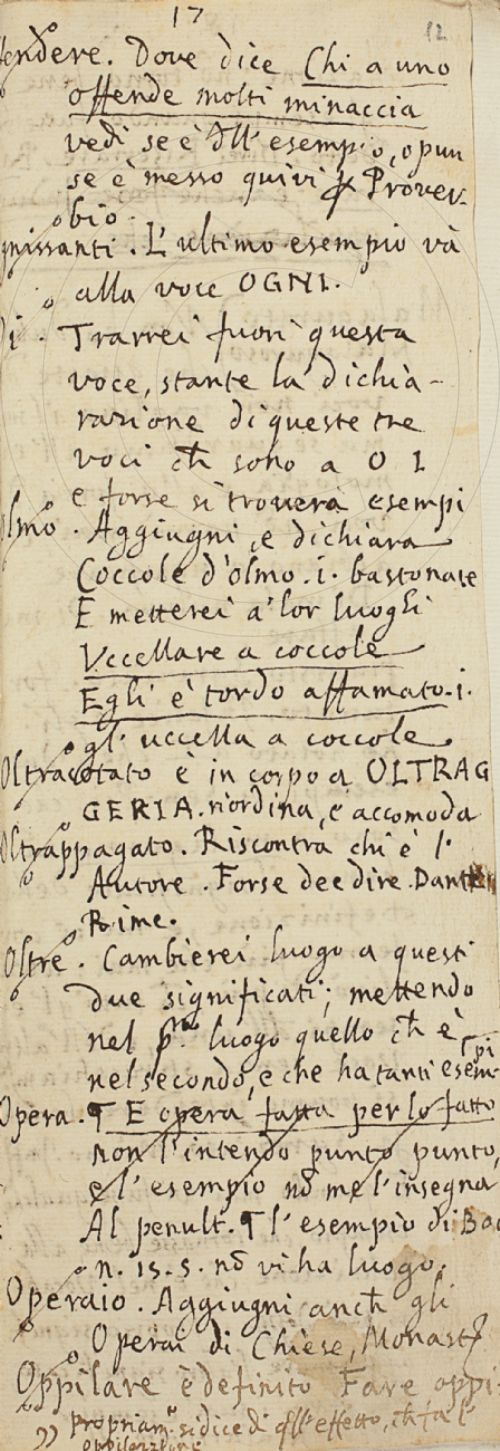 17
12
fendere. Dove dice Chi a uno
offende molti minaccia
vedi se è dell' esempio, o pun
se è messo quivi Prover-
bio.
nissanti. L'ultimo esempio và
alla voce OGNI.
Oi. Trarrei fuori questa
voce, stante la dichia-
razione di queste tre
voci ch sono a O I
e forse si trouerà esempi
Olmo. Aggiugni, e dichiara
Coccole d'olmo .i. bastonate
E metterei a' lor luoghi
Vccellare a coccole
Egli è tordo affamato .i.
gl' uccella a coccole
Oltracotato è in corpo a OLTRAG
GERIA. riordina, e accomoda
Oltrappagato. Riscontra chi è l'
Autore. Forse dee dire. Dante
Rime.
Oltre. Cambierei luogo a questi
due significati; mettendo
nel pmo luogo quello ch è
nel secondo, e che ha tanti esem-
pi
Opera. ¶ E opera fatta per lo fatto
non l'intendo punto punto,
e l'esempio nō me l'insegna
Al penult. ¶ l'esempio di Boc
n. 15. 5. nō vi ha luogo.
Operaio. Aggiugni anch gli
Operai di Chiese, Monast
Oppilare è definito Fare oppi-
propriam.e si dice di qll' effetto, ch fa l'
oppilazione